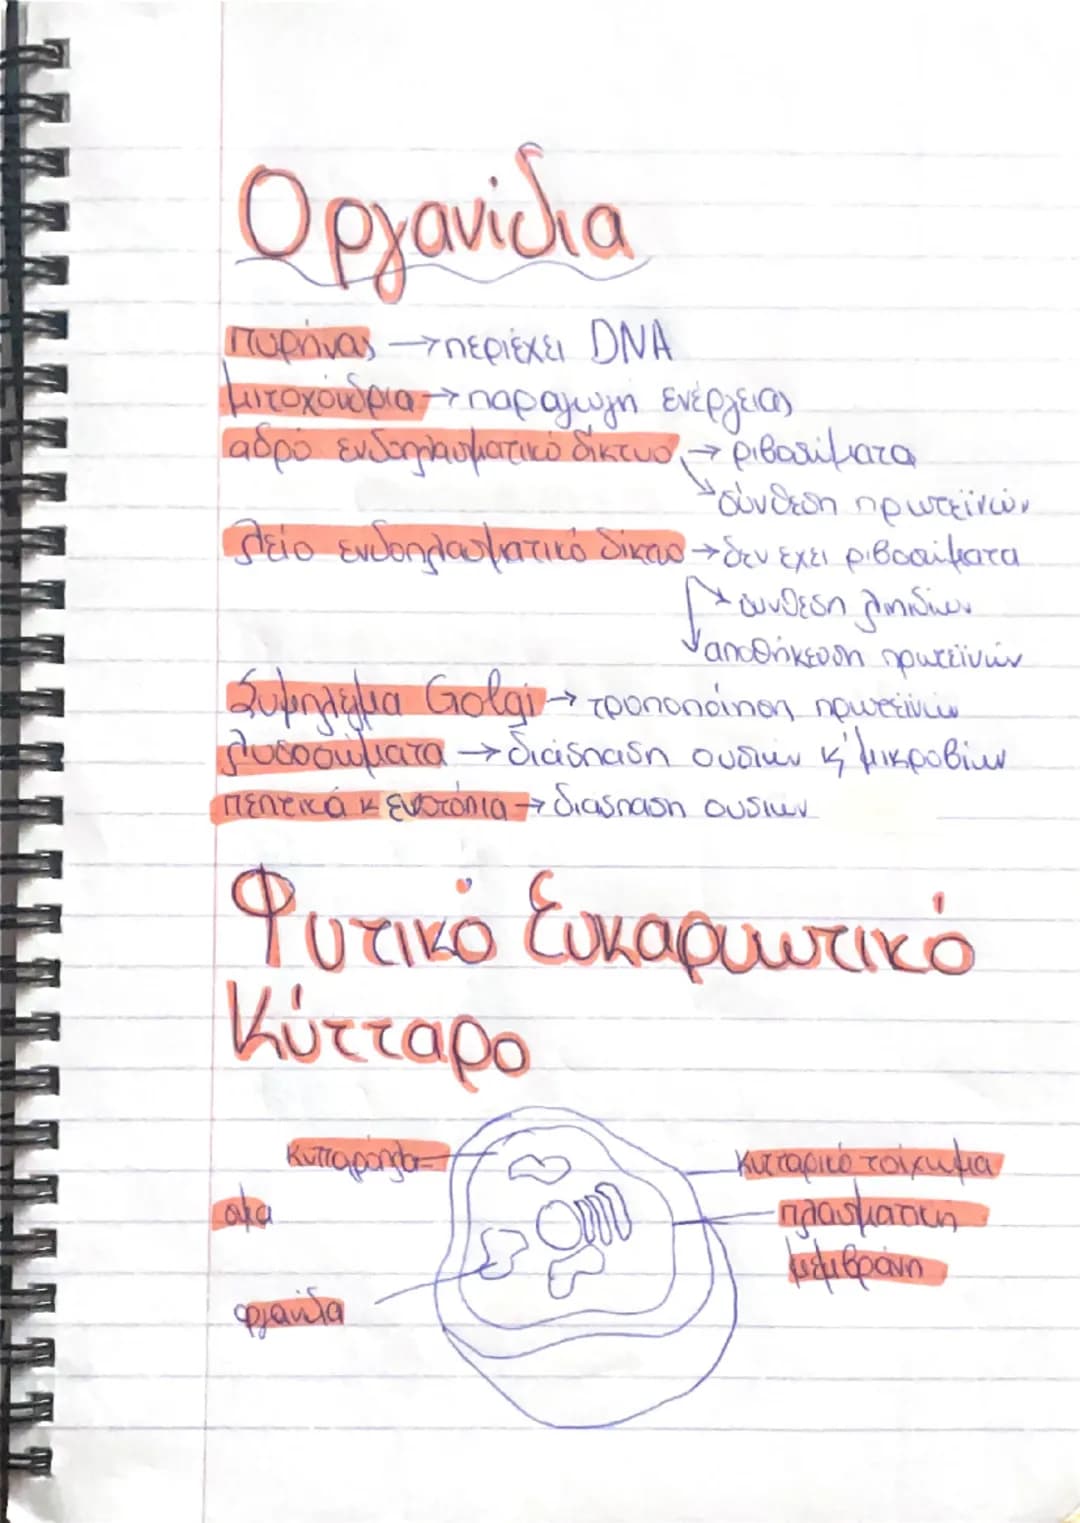 Οργανίδια
πυρήνας → περιέχει DNA
μιτοχόνδρια → παραγωγή ενέργειας
αδρό ενδοπλασματικό δίκτυο → ριβοσώματα
→ σύνθεση πρωτεϊνών
λείο ενδοπλασματικό δίκτυο → δεν εχει ριβοσώματα
→ συνθεση λιπιδίων
→ αποθήκευση πρωτεϊνών
Σύμπλεγμα Golgi → τροποποίηση πρωτεϊνών
λυσοσώματα → διάσπαση ουσιών κ' μικροβίων
πεπτικά κενοτόπια → διασπαση ουσιων
Φυτικό Ευκαρυωτικό
Κύτταρο
κυτταρόπλα- κυτταρικό τοίχωμα
σμα πλασματική
μεμβράνη
οργανίδια